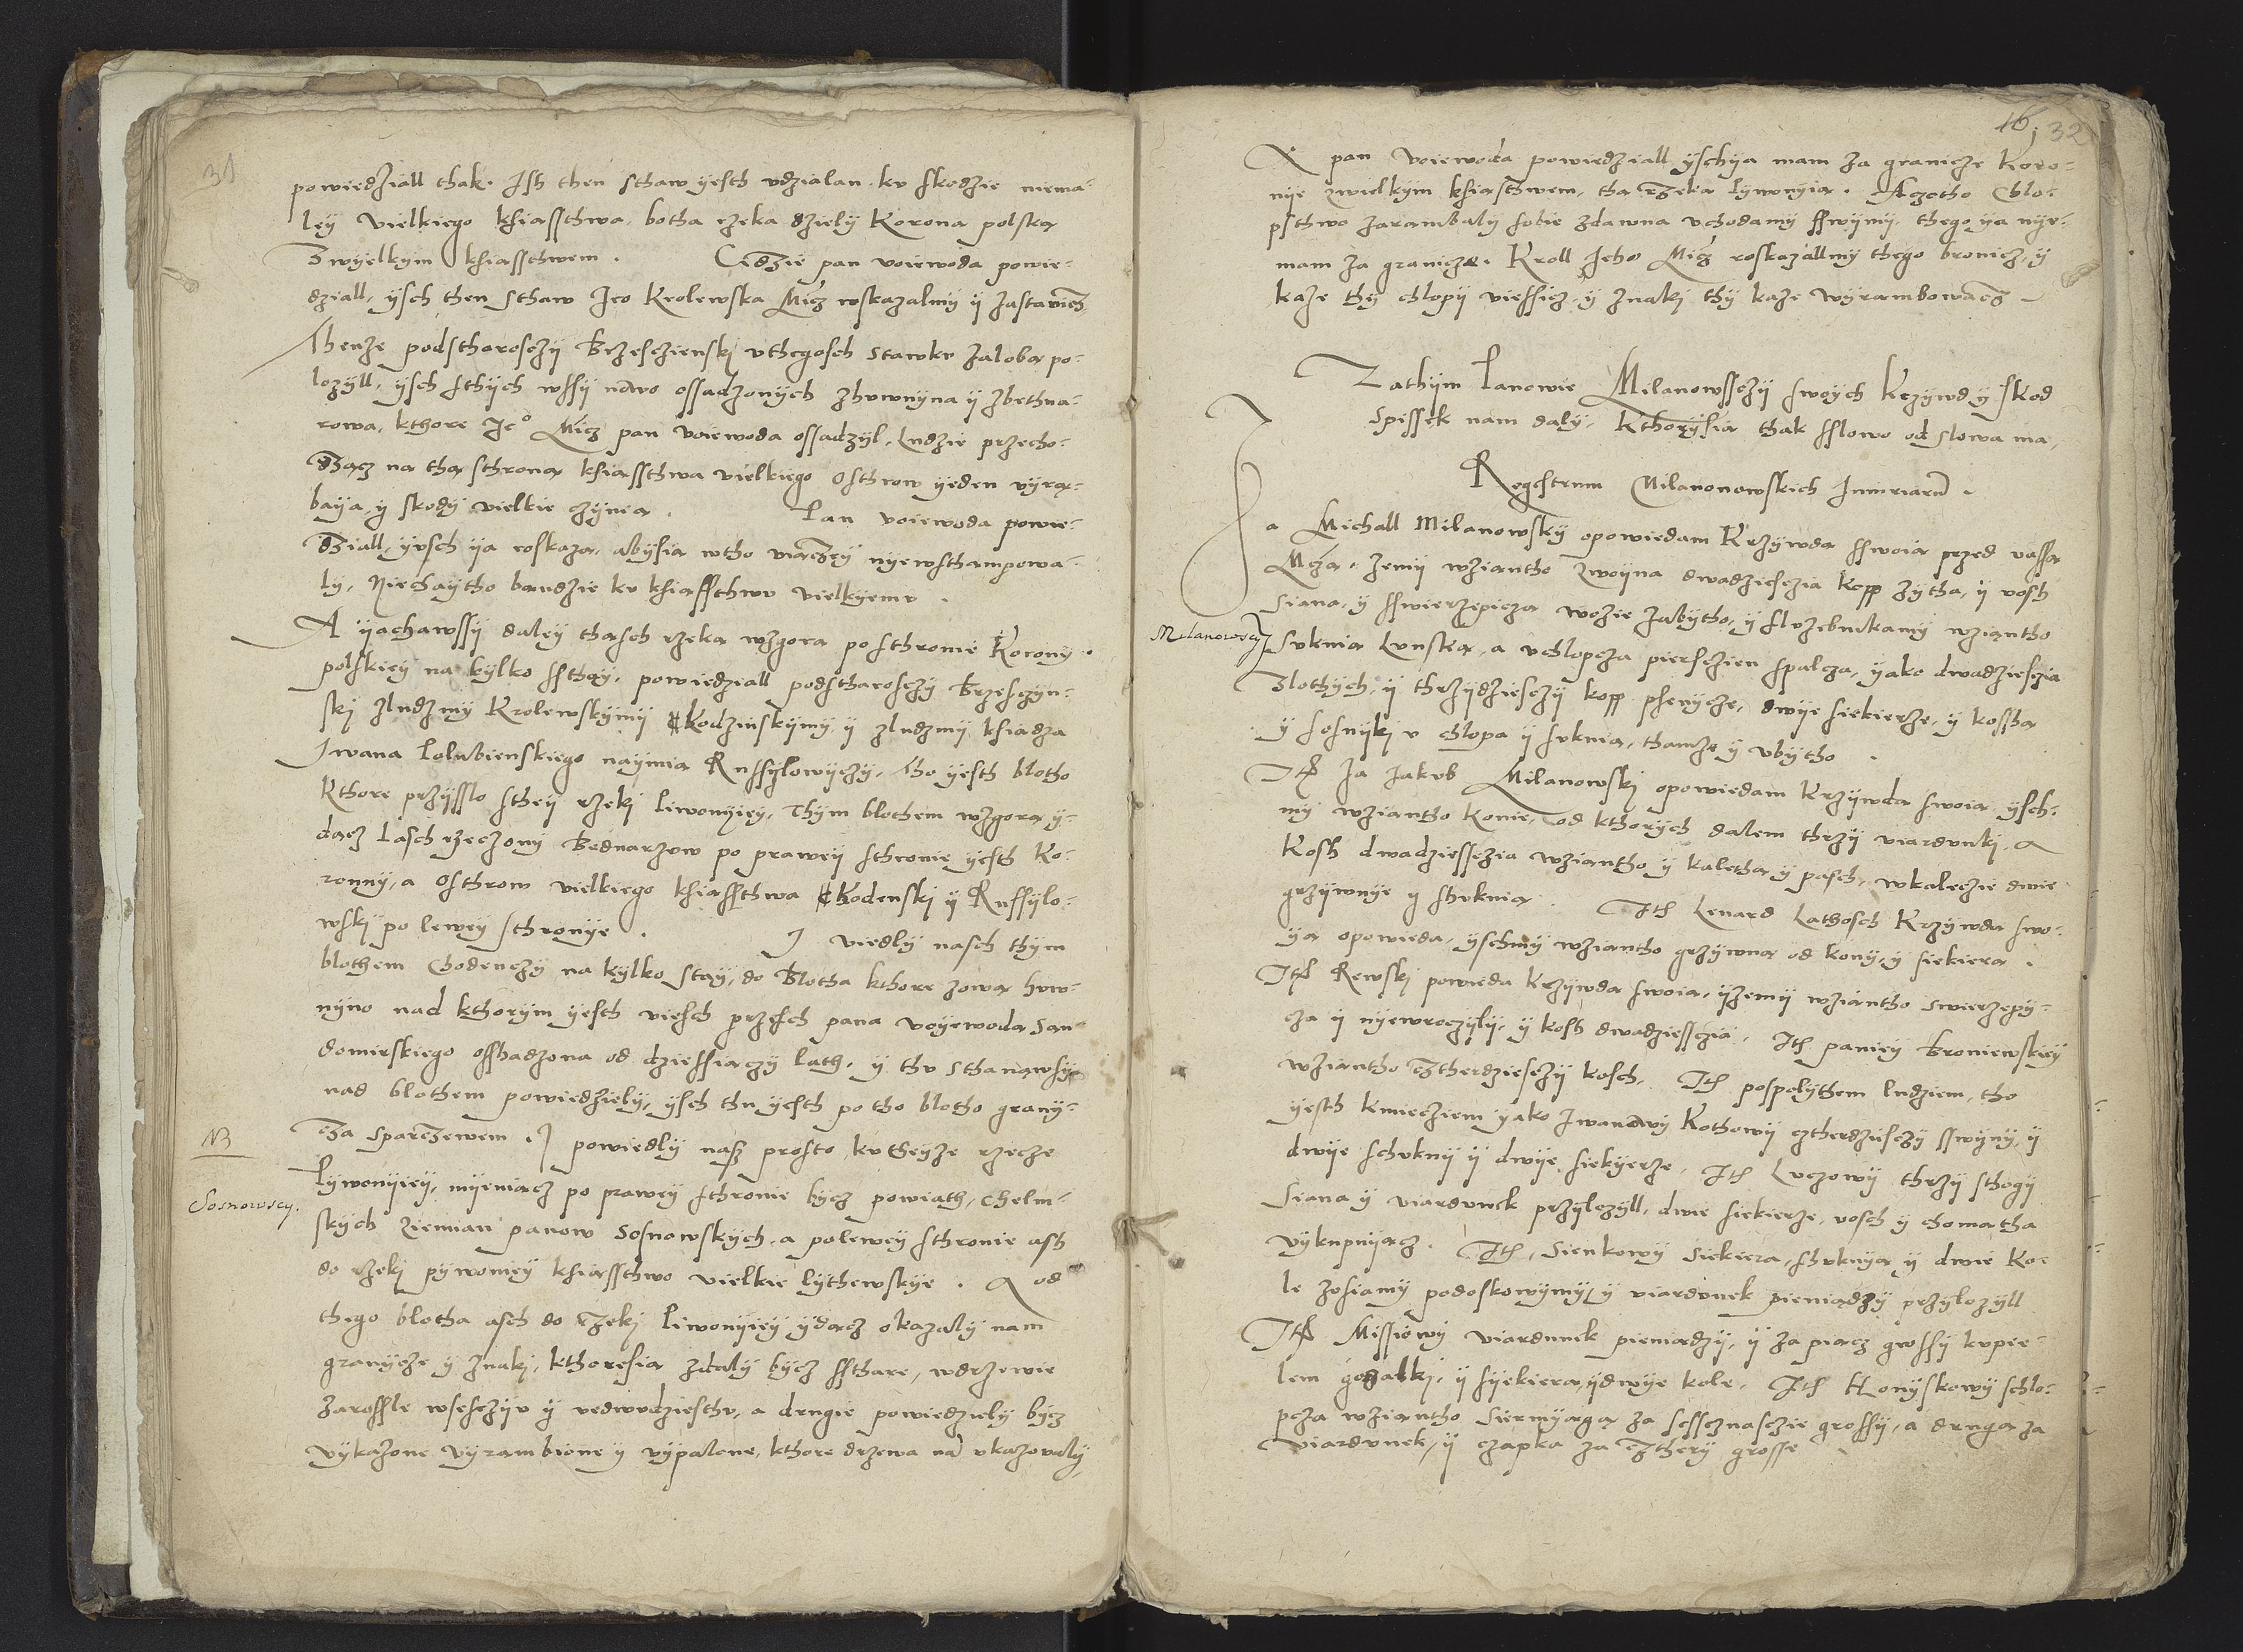 31
powiedziall thak. Ish then sthaw yesth vdzialan. kv skodzie niema-
ley Vielkiego khsiassthwa. botha rzeka dziely Korona polska
Zwyelkym khsiassthwem. Cidzie pan voiewoda powie-
dziall, ysch then sthaw Jeo Krolewska Micz wskazalmy y zastawicz
Thenze podsthorosczy Brzesczienskj vthegosch stawkv zaloba po-
lozyll, ysch sthych wssy nowo ossadzonych zhvwnyna y zbethna-
rowa, kthore Jeo Micz pan voiewoda ossadzyl. Ludzie przecho-
dzacz na tha sthrona khsiassthwa vielkiego Osthrow yeden vyra-
baya, y skody vielkie czynia. Pan voiewoda powie-
dziall, yvsch ya roskaza, abysia wtho viaczey nyewsthampowa-
ly, Niechaytho bandzie kv khsiassthwv vielkyemv.
A yachawssy daley thasch rzeka wzgora po sthronie Korony
polskiey na kylko ssthay, powiedziall podstharosczy Brzesczyn-
skj zludzmy Krolewskymy Kodzinskymy y zludzmy khsiadza
Jwana Polubienskiego naymia Russylowyczy, Tho yesth blotho
kthore przysslo sthey rzekj Liwonyiey, Thym blothem wzgora y-
dacz Lasch rzeczony Bednarzow po prawey sthronie yesth Ko-
ronny, a Osthrow vielkiego khsiassthwa Kodenskj y Russylo-
wskj po lewey sthronye. J viedly nasch thym
blothem Chodenczy na kylko stay, do Blotha kthore zowa hvw-
nyno nad kthorym yesth viesch przesch pana voyewoda San-
domirskiego osshadzona od dziessiaczy lath, y thv sthanawsy
nad blothem powiedziely, ysch thu yesth po tho blotho grany-
cza sparczewem. J powiedly nasz prosto kv theyze rzecze
Lywonyiey, myeniacz po prawey sthronie bycz powiath, Chelm-
skych Ziemian panow Sosnowskych, a polewey sthronie ash
do rzekj pywoniey khsiassthwo vielkie lythewskye. A od
thego blotha asch do rzekj Liwonyiey ydacz okazaly nam
granycze y znakj, kthoresia zdaly bycz ssthare, wdrzewie
zarossle wsesczyv y vedwvdziesthv, a drugie powiedziely bycz
vykazone vyrambione y vypalene, kthore drzewa na vkazowaly
NB
Sosnowscy.
16. 32
A pan voiewoda powiedziall yschya mam za granicze Koro-
nye zwielkym khsiasthwem, tha rzeka lywonyia. Aczotho Chlo-
psthwo zarambaly sobie zdawna vchodamy sswymy, thego ya nye-
mam za granicza. Kroll Jeho Micz roskazallmy thego bronicz, y
kaze thy chlopy viessicz, y znakj thy kaze wyrambowacz
Zathym Panowie Milanowssczy swoych Krzywd y skod
Spissek nam daly, Kthorysia thak sslowo od slowa ma,
Regestrum Milanonowskich Iniuriarum.
Ja Michall Milanowsky opowiedam Krzywda sswoia przed vassa
Mcza, zemy wziantho Zwoyna dwadziesczia kopp zytha, y vosh
siana, y sswierzepicza wozie zabytho, y slvzebnikamy wziantho
Suknia Lunska, a vchlopcza piersczien spalcza, yako dwadziesczia
zlothych, y thrzydziesczy kopp phenycze, dwye siekierze, y kossha
y sosnykj v chlopa y suknia, thamze y vbytho.
Ith Ja Jakvb Milanowskj opowiedam Krzywda swoia ysch-
my wziantho konie, od kthorych dalem thrzy viardunkj. A
kosh dwadziessczia wziantho y kaletha y pasch, wkaleczie dwie
grzywnye y shvknia. Ith Lenard Lathosch Krzywda swo-
ya opowieda, yschmy wziantho grzywna od kony, y siekiera.
Ith Rewskj powieda Krzywda swoia, yzemy wziantho swierzepy-
cza y nyewroczyly, y kosh dwadziessczia. Ith paniey Broniewskiey
wziantho cztherdziesczy kosch. Ith pospolythem ludziem, tho
yesth kmiecziem yako Jwanowy Kothowy cztherdziesczy sswyny, y
dwye schvkny y dwye siekyerze. Ith Luczowy thrzy sthogy
Siana y viardvnck przylczyll, dwie siekierze, vosch y chomatha
vykupuyacz. Ith, Sienkowy Siekiera, shvknya y dwie ko-
le zosiamy podoskowymy, y viardvnek pieniadzy przylozyll
Ith Missiowy viardunck pieniadzy, y za piacz grossy kvpie-
lem gozalkj, y syekiera, ydwye kole. Ith Honyskowy schlo-
pcza wziantho siermyaga za sescznasczie grossy, a druga za
viardvnek, y czapka za czthery grosse
Milanowscy